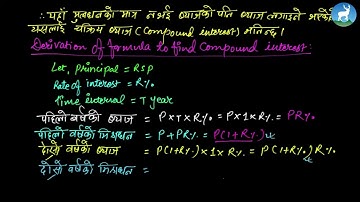 ∴ यहाँ मूलधनको मात्र नभई ब्याजको पनि ब्याज लगाइने भएकोले
यसलाई चक्रिय ब्याज (Compound interest) भनिन्छ।
Derivation of formula to find Compound interest:
Let, principal = RS P
Rate of interest = R%
Time interval = T year
पहिलो वर्षको ब्याज = P×T×R% = P×1×R% = PR%
पहिलो वर्षको मिश्रधन = P+PR% = P(1+R%)
दोस्रो वर्षको ब्याज = P(1+R%)×1×R% = P(1+R%)R%
दोस्रो वर्षको मिश्रधन =